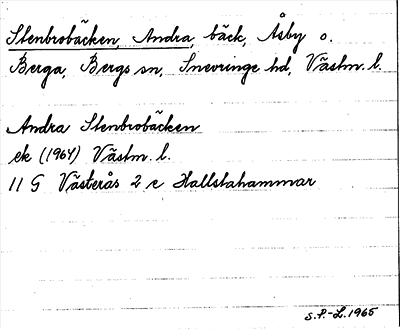 Stenbrobäcken, Andra, bäck, Åsby o.
Berga, Bergs sn, Snevringe hd, Västm. l.
Andra Stenbrobäcken
ek (1964) Västm. l.
11 G Västerås 2 c Hallstahammar
S.P.-L. 1965